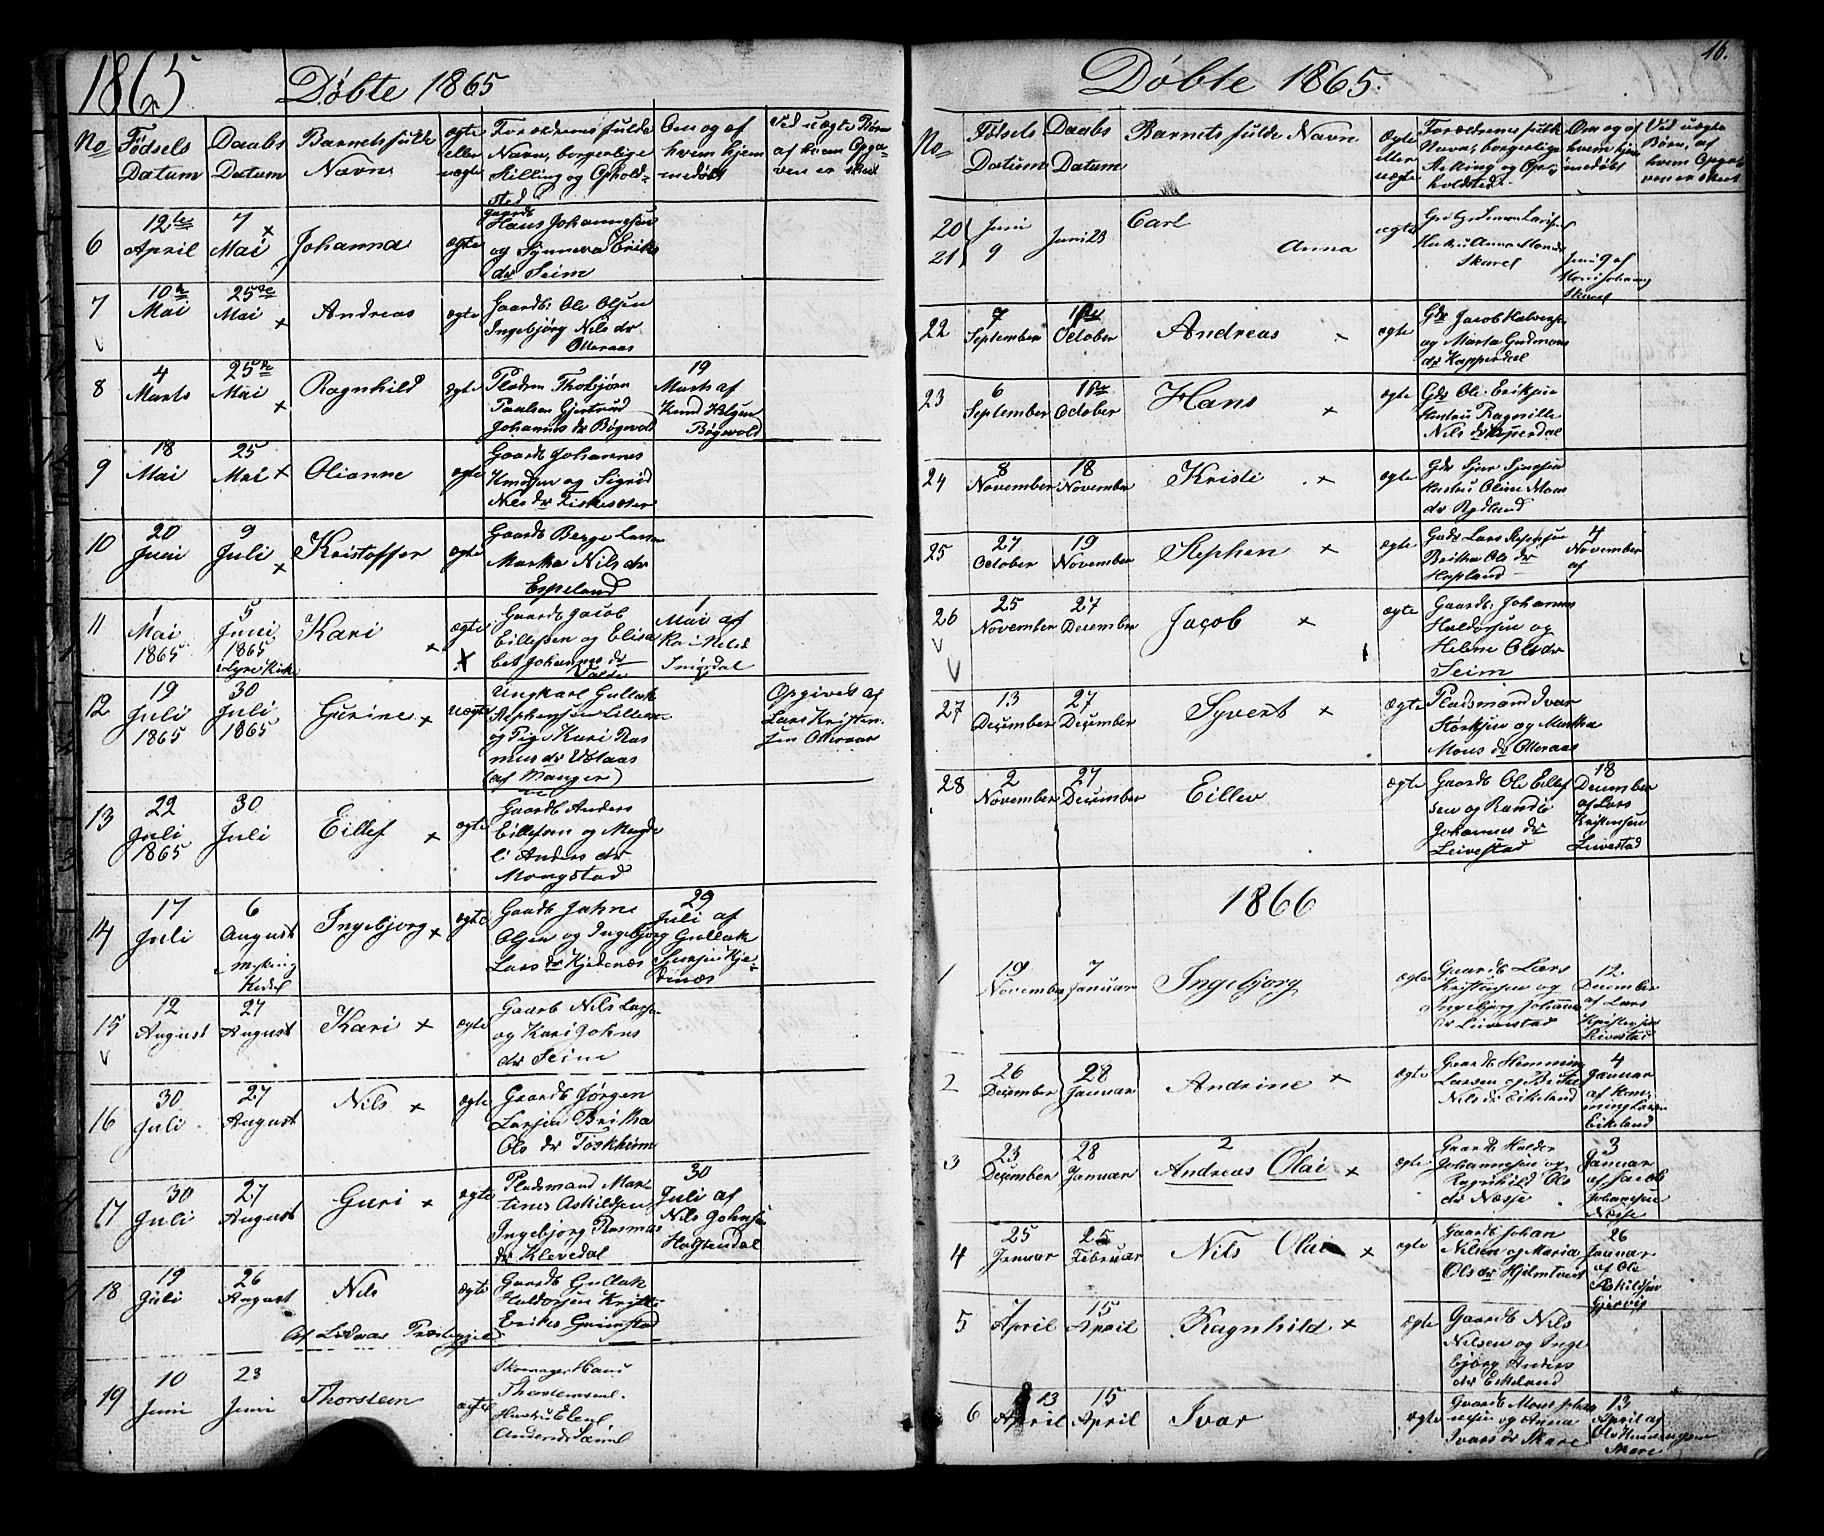 1865
Døbte 1865
No Fødsels Datum Daabs Datum Barnets fulde Navn ægte eller uægte Forældrenes fulde Navn, borgerlige Stilling og Ophold-sted Om og af hvem hjem-medøbt Ved uægte Børn af hvem Opga-ven er skeet
6 12te April 7 Mai × Johanna ægte gaardb
Hans Johannesen
og Synneva Eriks
dr Seim
7 10de Mai 25de Mai × Andreas ægte Gaardb: Ole Olsen
Ingebjørg Nils dr
Otteraas
8 4 Marts 25de Mai × Ragnhild ægte Pladsm Thorbjørn
Paulsen Gjertrud
Johannes dr Bøgevold
19
Marts af
Knud Helgesen
Bøgevold
9 18 Mai 25 Mai × Olianne ægte Gaardb Johannes
Knudsen og Sigrid
Nils dr
10 20 Juni 9 Juli × Kristoffer ægte Gaardb Berge Larsen
Martha Nils dr
Espeland
11 1 Mai 1865 5 Juni 1865 i Lyre Kirke Kari × ægte X Gaardb Jacob
Eillefsen og Elisa
bet Johannes dr
1
Mai af
12 19 Juli 1865 30 Juli 1865 Gurine × uægte Ungkarl Gullak
Stephensen
og Pige Kari Ras
mus dr
(af Manger)
Opgivet af
Lars Kristen
sen Otteraas
13 22 Juli 1865 30 Juli Eillef × ægte Gaardb Anders
Eillefsen og Magde
li Anders dr
Mongstad
14 17 Juli 6 August Ingebjorg × ægte Gaardb Jahne
Olsen og Ingebjorg
Lars dr Kjedenæs
29
Juli af
Gullak
15 12 August 27 August Kari × ægte Gaardb Nils Larsen
og Kari Johns
dr Seim
16 30 Juli 27 August Nils × ægte Gaardb Jørgen
Larsen Britha
Ols dr
17 30 Juli 27 August Guri × ægte Pladsmand Mar
tines Askildsen
Ingebjorg Rasmus
dr Klevedal
30
Juli af
Nils Johnsen
Halstendal
18 19 Juli 26 August Nils ægte Gaardb Gullak
Haldorsen Kristi
Eriks Grimstad
Af Lindaas Præstegjeld
19 10 Juni 23 Juni Thorstein ægte Skomager Hans
Thorstensen
Hustru Elen
Anders dr
16.
Døbte 1865.
No Fødsels Datum Daabs Datum Barnets fulde Navn Ægte eller uægte Forældrenes fulde Navn, borgerlige Stilling og Op-holdsted Om og af hvem hjem-medøbt Ved uægte Børn, af hvem Opga-ven er skeet
20
21 Juni 9 Juni 23 Carl
Anna ægte
Hustru Anna Mons dr
Skarel
Juni 9 af
Skarel
22 7 September October Andreas × ægte Gdr Jacob Halvorsen
og Marta Gudmons
dr Kopperdal
23 6 September October Hans × ægte Gdr Ole Eriksen
Hustru Ragnille
Nils dr Koperdal
24 8 November 18 November Kristi × ægte Gdr Sjur Sjursen
Hustru Oline Mons
dr Rydland
25 27 October 19 November Stephen × ægte Gdr Lars Stephensen
Britha Ols dr
Hopland
4
November
af
26 25 November 27 Desember Jacob × ægte Gaardb: Johannes
Haldorsen og
Helene Olsdr
Seim
27 13 Desember 27 Desember Syvert × Ægte Pladsmand Ivar
Størksen og Martha
Mons dr Otteraas
28 2 November 27 Desember Eillev ægte Gaardb Ole Eillef
sen og Randi
Johannes dr
Leivestad
18
Desember
af Lars
Kristensen
Leivestad
1866
1 19 November 7 Januar Ingebjorg ægte Gaardb Lars
Kristensen og
Ingebjorg Johannes
dr Leivestad
12
Desember
af Lars
Kristensen
Leivestad
2 26 Desember 28 Januar Andrine × ægte Gaardb Hemming
Larsen og Britha
Nils dr Eikeland
4
Januar
af Hem
ming Larsen
Eikeland
3 23 Desember 28 Januar 2 1
Andreas Olai × ægte Gaardb Haldor
Johannesen og
Ragnhild Ols
dr Næsse
3
Januar
af Jacob
Johannesen
Næsse
4 25 Januar 25 Februar Nils Olai × ægte Gaardb Johan
Nilsen og Maria
Ols dr Hjelmtveit
26
Januar
af Ole
Askildsen
Gjervig
5 7 April 15 April Ragnhild × ægte Gaardb Nils
Nilsen og Inge
bjorg Anders
dr Eikeland
6 13 April 15 April Ivar ægte Gaardb Mons Johan
nesen og Anna
Ivars dr Skare
13
April af
Ole Hemmingsen
Skare